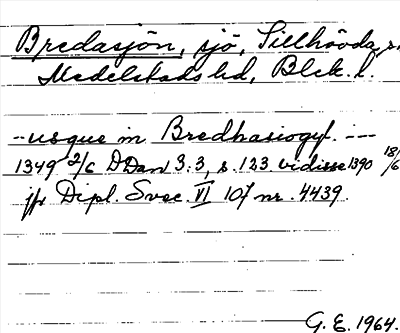 Bredasjön, sjö, Sillhövda s.
Medelstads hd, Blek. l.
-- usque in Bredhasiogyl. ---
1349 2/6 DDan 3:3, s. 123 vidisse 1390 18/6
jfr Dipl. Svec. VI 107 nr. 4439.
G. E. 1964.